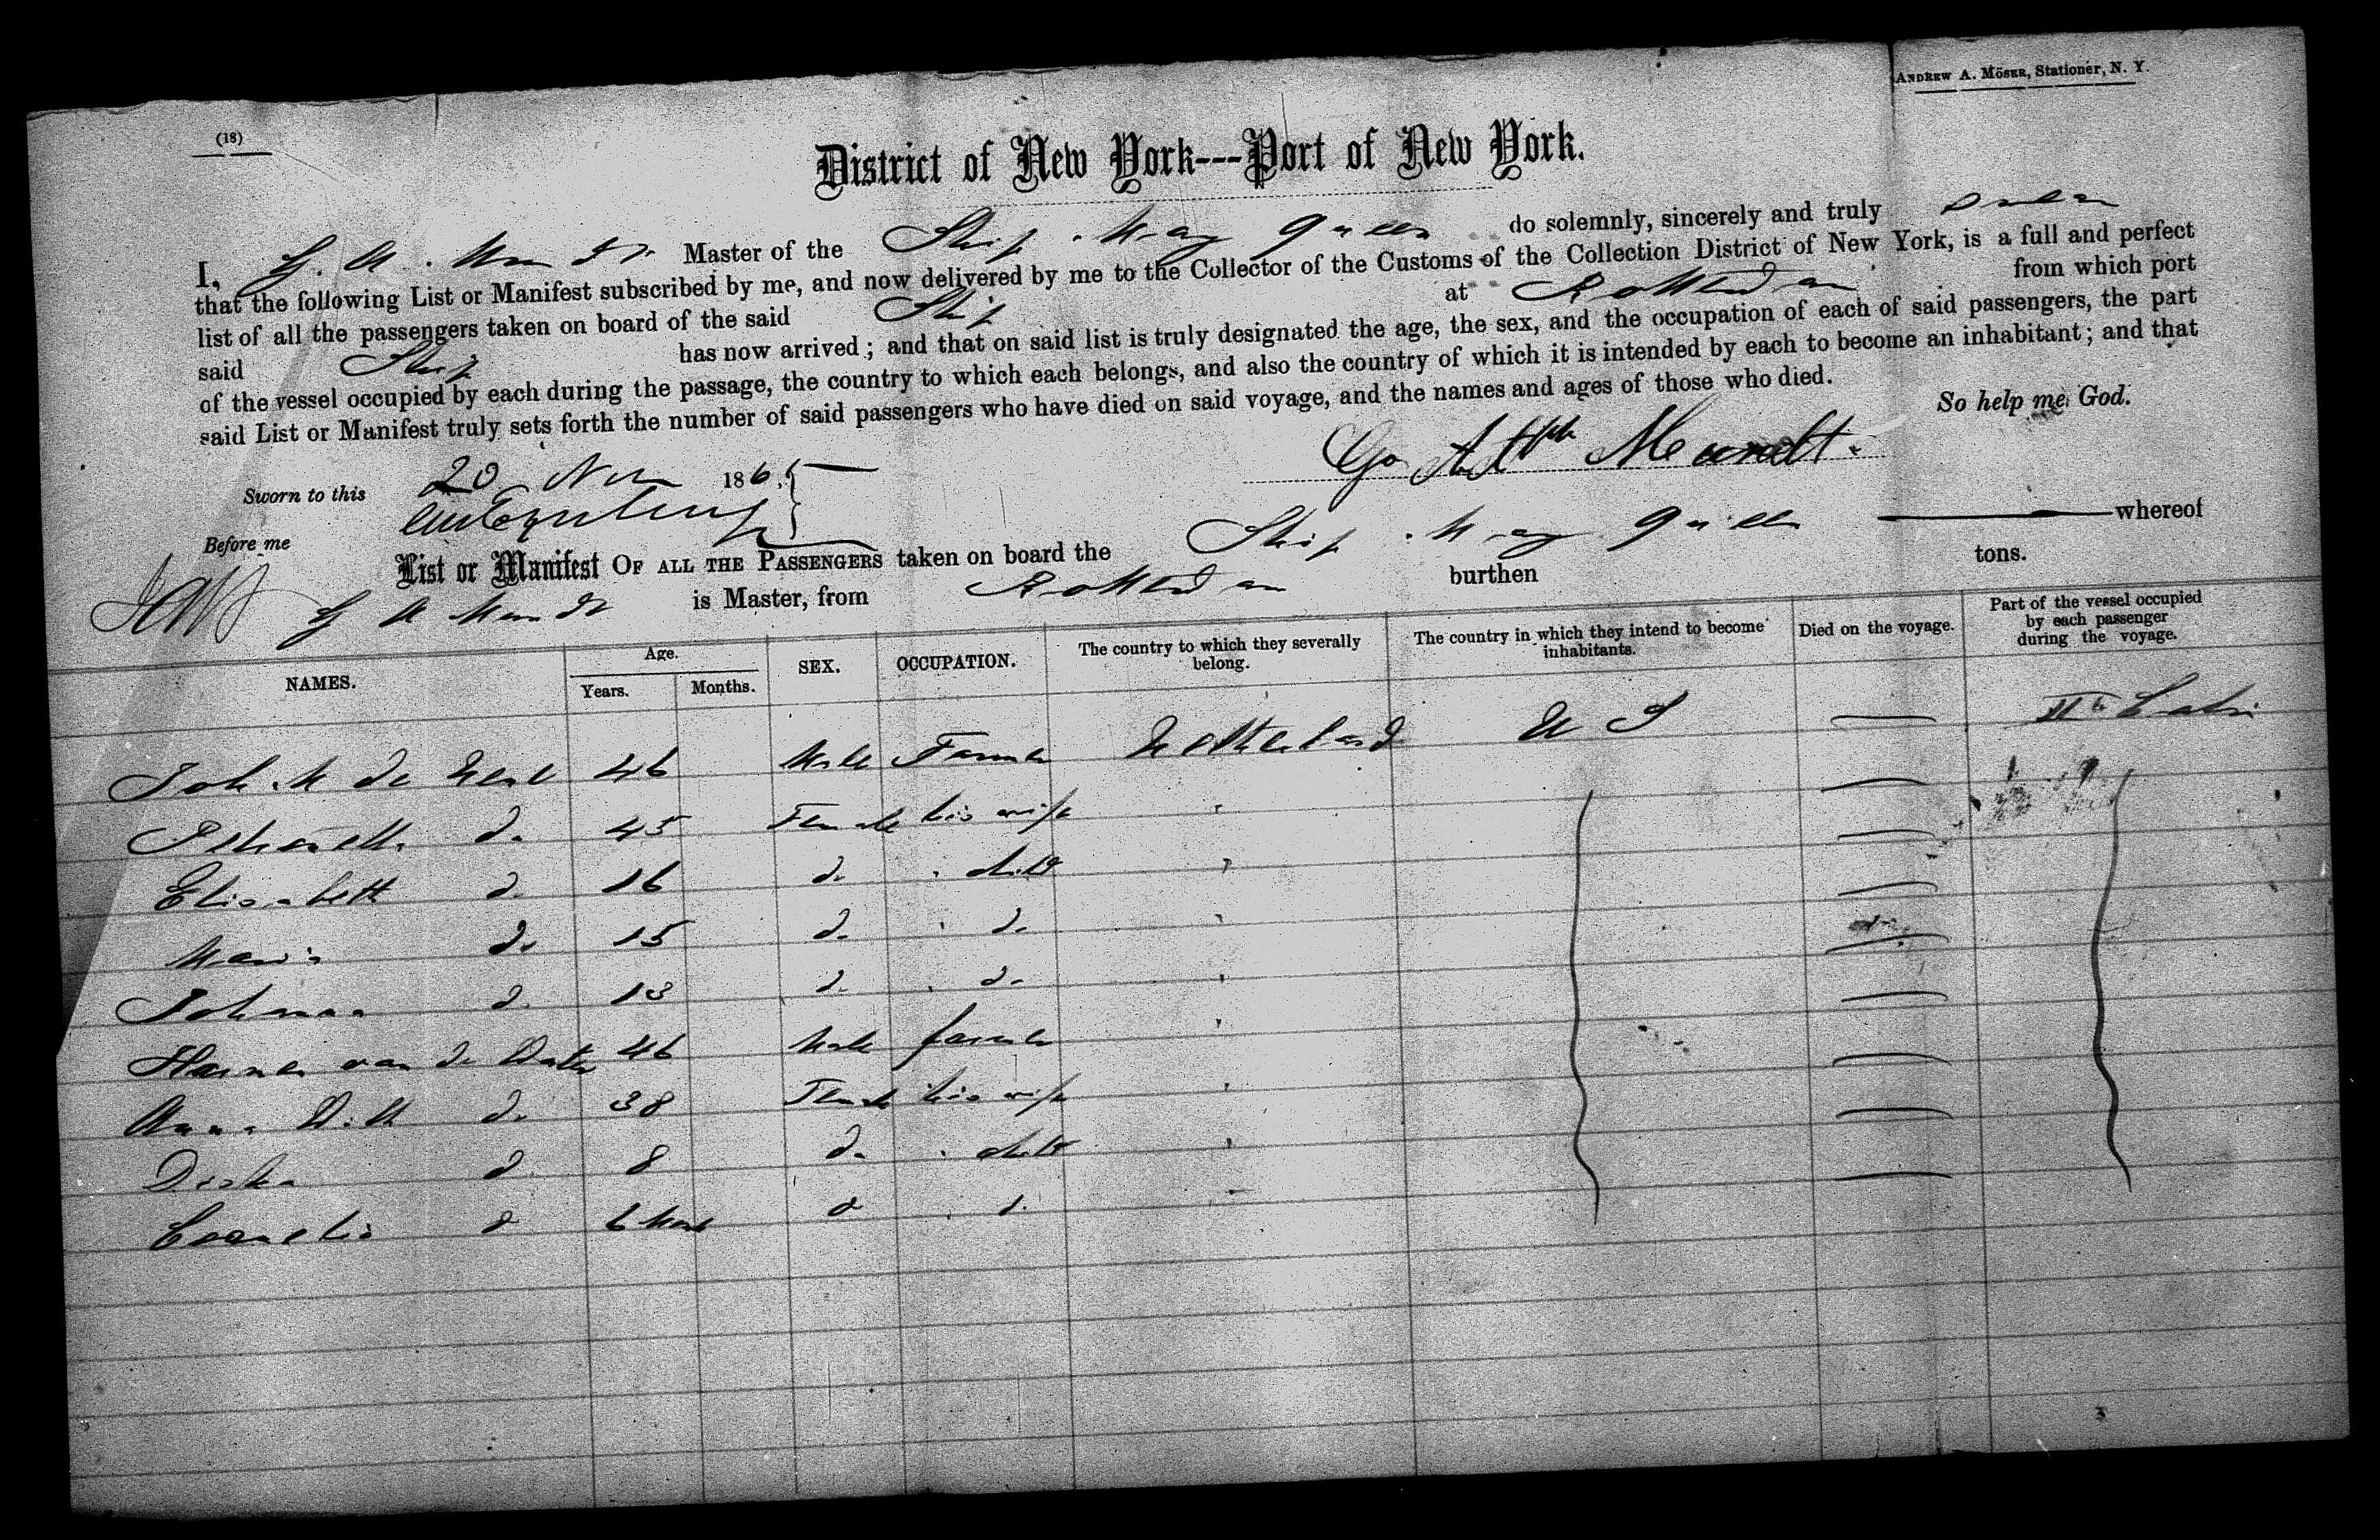 ANDREW A. MÖSER, Stationer, N. Y.
(18)
District of New York---Port of New York.
I, G. A. Mundt Master of the Ship May Queen do solemnly, sincerely and truly swear
that the following List or Manifest subscribed by me, and now delivered by me to the Collector of the Customs of the Collection District of New York, is a full and perfect
list of all the passengers taken on board of the said Ship at Rotterdam from which port
said Ship has now arrived; and that on said list is truly designated the age, the sex, and the occupation of each of said passengers, the part
of the vessel occupied by each during the passage, the country to which each belongs, and also the country of which it is intended by each to become an inhabitant; and that
said List or Manifest truly sets forth the number of said passengers who have died on said voyage, and the names and ages of those who died.
So help me God.
Sworn to this 20 Nov 186
Before me
List or Manifest OF ALL THE PASSENGERS taken on board the Ship May Queen whereof
G A Mundt is Master, from Rotterdam burthen tons.
NAMES. Age. Years. Months. SEX. OCCUPATION. The country to which they severally belong. The country in which they intend to become inhabitants. Died on the voyage. Part of the vessel occupied by each passenger during the voyage.
Joh. M de 46 Male Farmer Netherland U S — Cabin
Petronella do 45 Female his wife " —
Elisabeth do 16 do " child " —
Maria do 15 do " do " —
Johanna do 13 do " do " —
van de Water 46 Male farmer " —
Anna do 38 Female his wife " —
Dirka do 8 do " child " —
Cornelia do 6 do " do " —